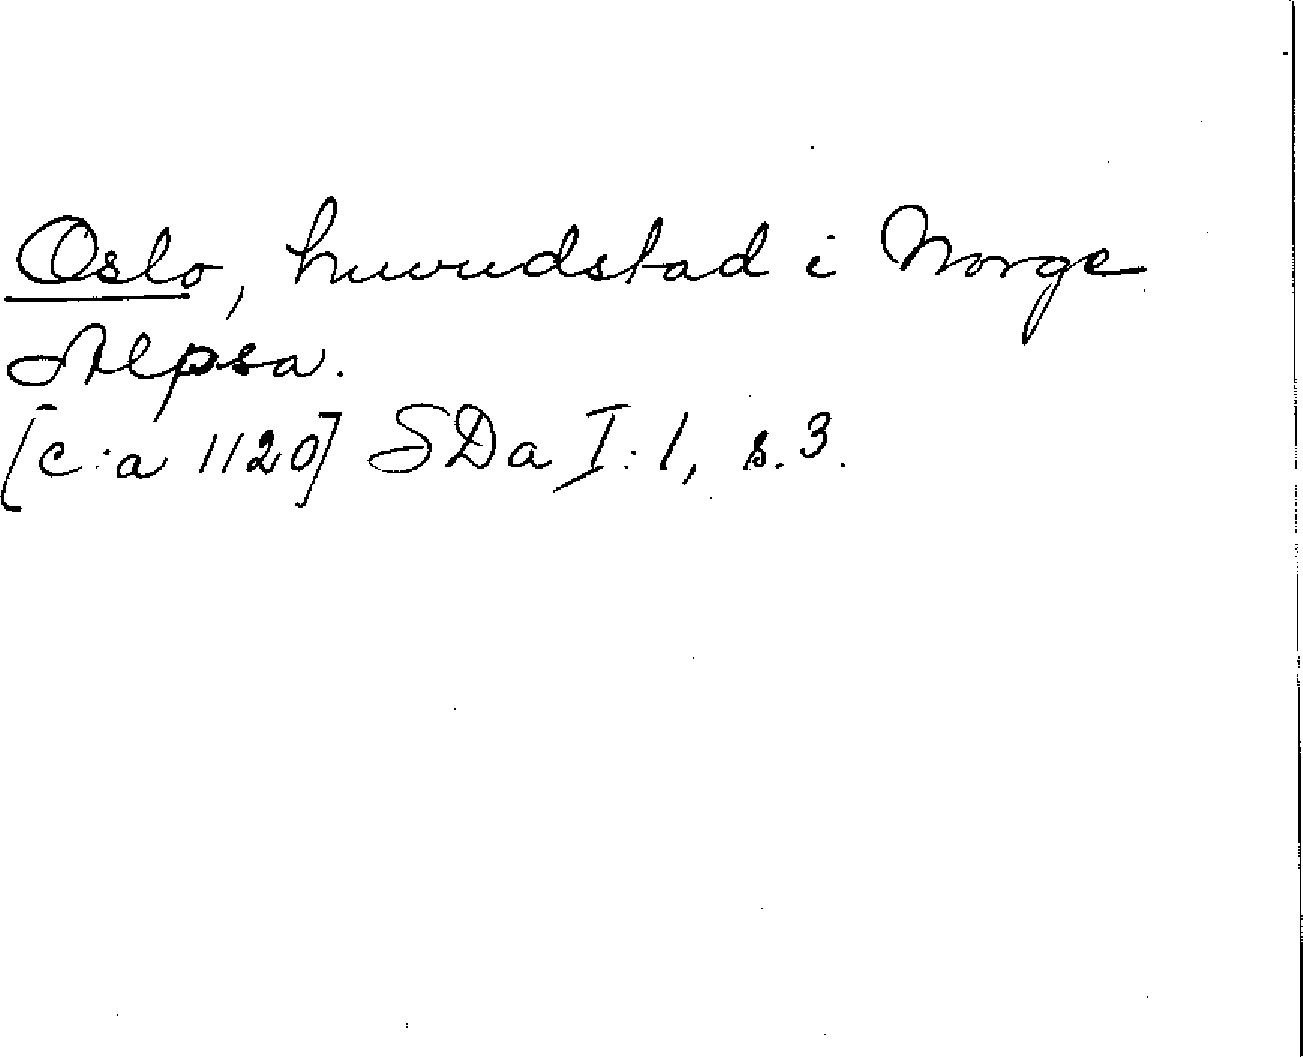 Oslo, huvudstad i Norge
Alpsa.
[c:a 1120] SDa I:1, s. 3.